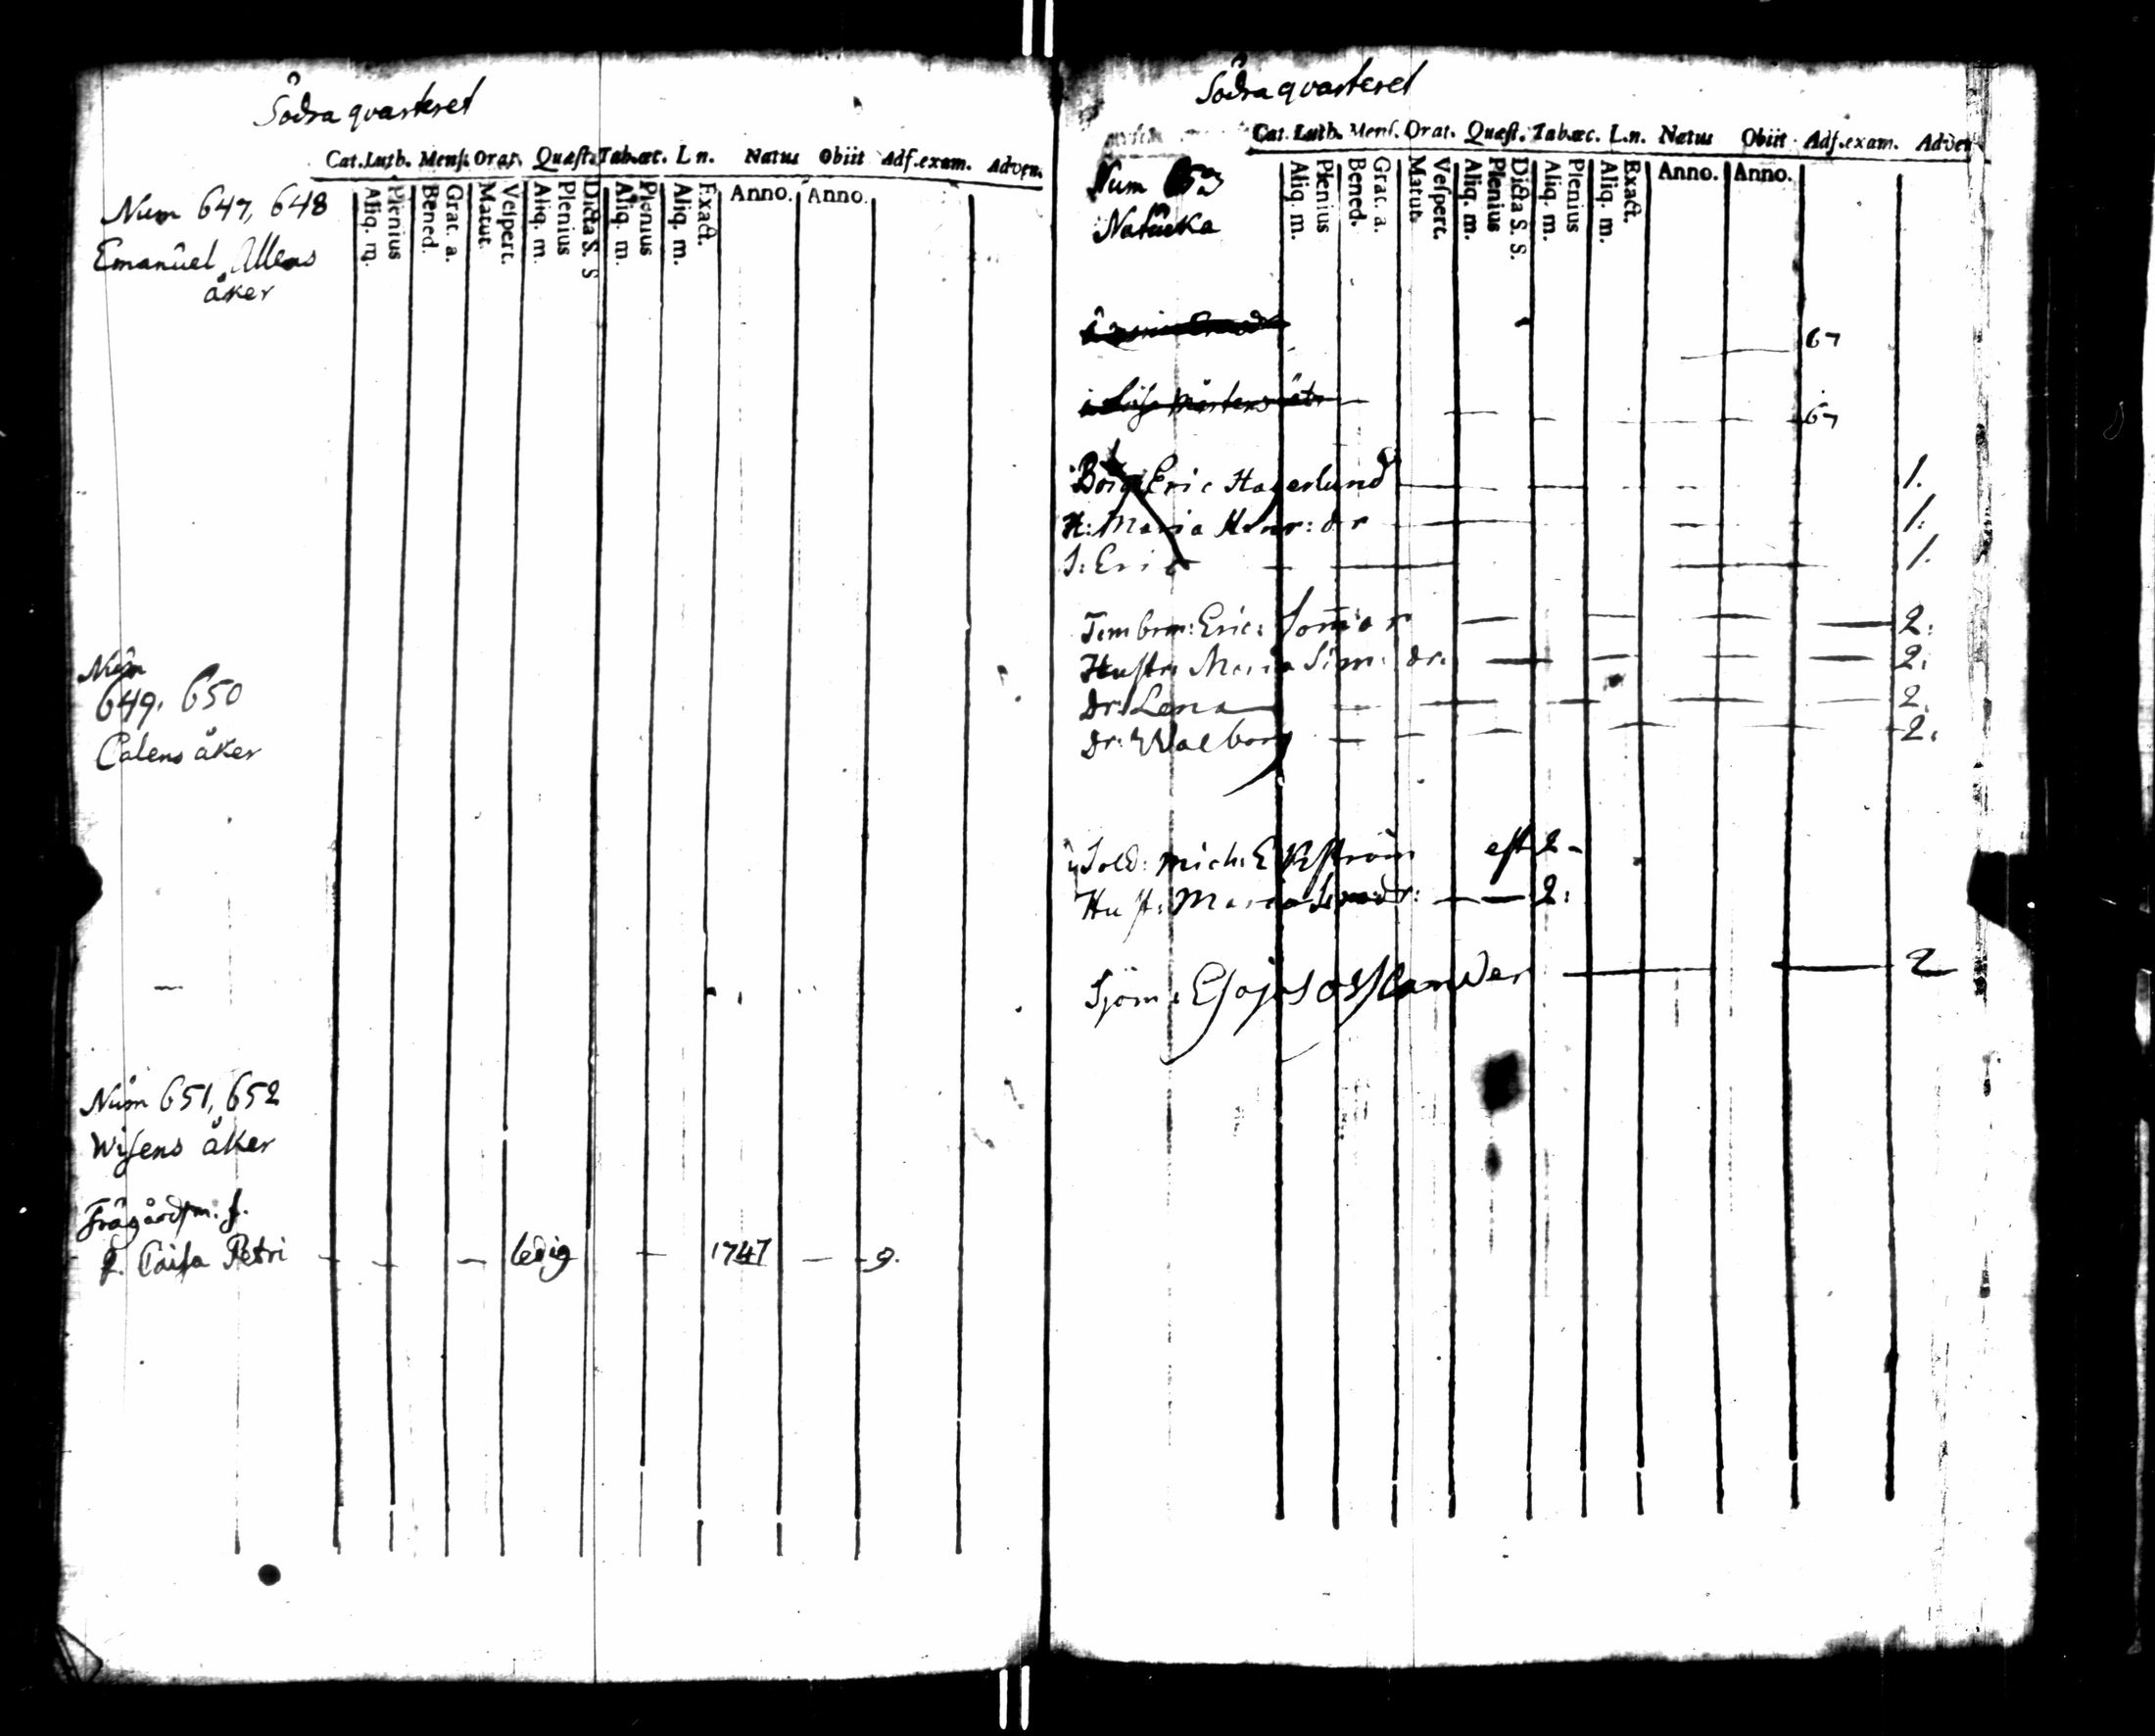 Södra qvarteret
Cat. Luth. Mens. Orat. Quæst. Tabæc. L n. Natus Obiit Adf. exam. Adven.
Aliq. m. Plenius Bened. Grat. a. Matut. Vespert. Aliq. m. Plenius Dicta S. S Aliq. m. Plenius Aliq. m. Exact. Anno. Anno.
Num 647, 648
Emanuel Allens
åker
Num
649. 650
Calens åker
Num 651, 652
Wisens åker
Trägårdsm. f.
Caisa Petri ledig 1747 9.
Södra qvarteret
Cat. Luth. Mens. Orat. Quæst. Tabæc. L.n. Natus Obiit Adf. exam. Adven
Aliq. m. Plenius Bened. Grat. a. Matut. Vespert. Aliq. m. Plenius Dicta S. S. Aliq. m. Plenius Aliq. m. Exact. Anno. Anno.
Num 653
67
Mårtens 67
Borg: Eric Hagerlund 1.
H: Maria Henr: dr 1.
S: Eric 1.
Timbrm: Eric: 2.
Hustr. Maria Sim: dr. 2.
Dr: Lena 2.
Dr: Walborg 2.
Sold: Mich: Ekström est 2
Hust: Maria 2:
Sjöm: 2